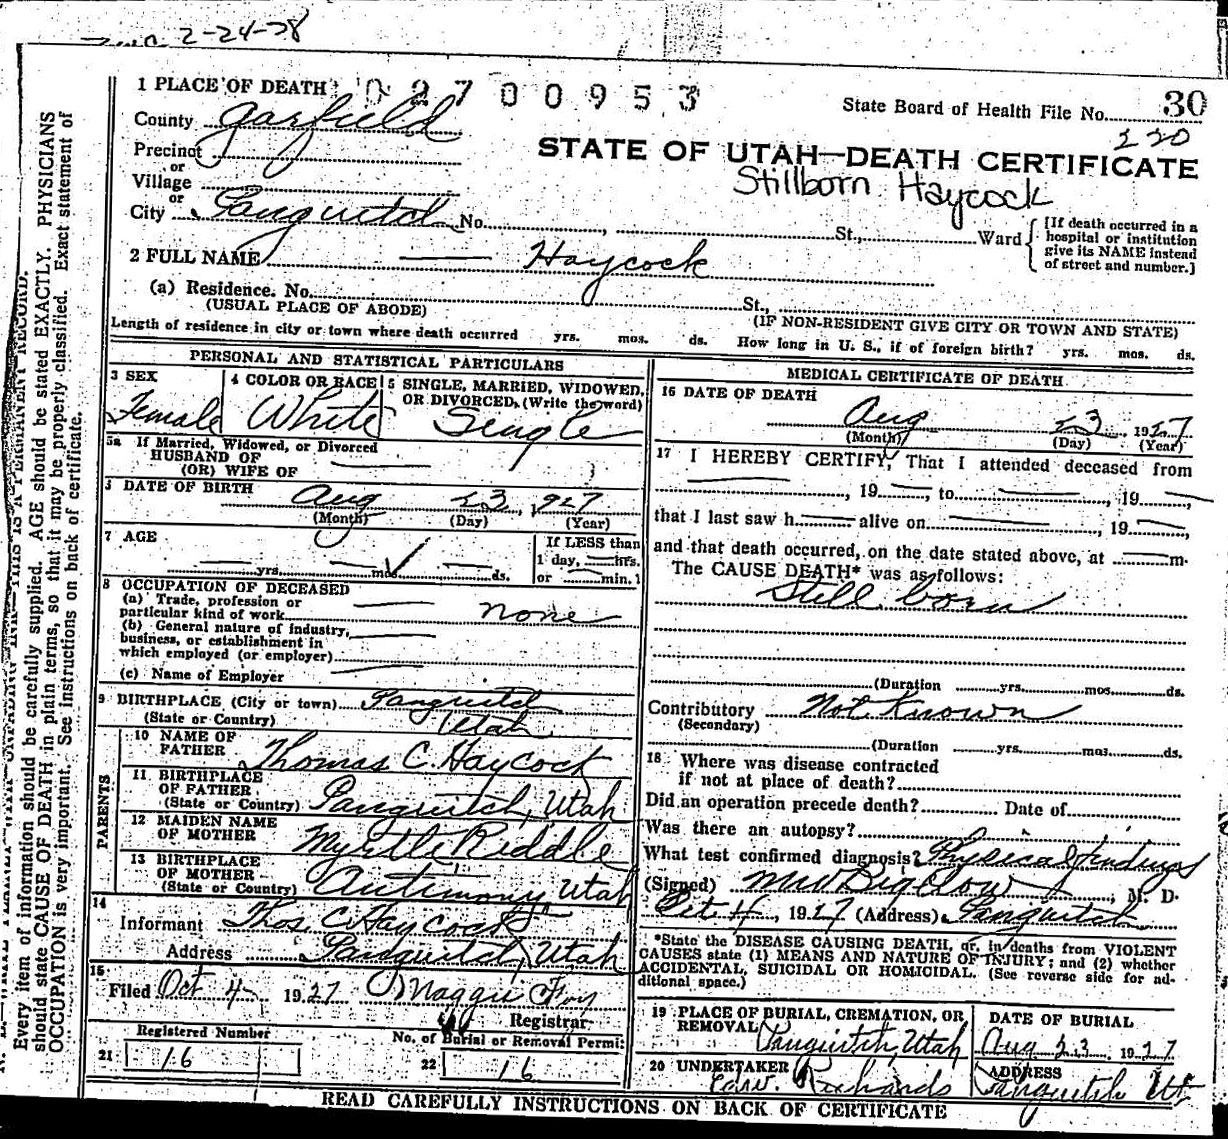 2-24-28
1 PLACE OF DEATH 02700953
State Board of Health File No. 30
220
County Garfield
STATE OF UTAH—DEATH CERTIFICATE
Precinct
or
Stillborn Haycock
Village
or
City Panguitch No. St., Ward
[If death occurred in a
hospital or institution
give its NAME instead
of street and number.]
2 FULL NAME — Haycock
(a) Residence. No. St.,
(USUAL PLACE OF ABODE) (IF NON-RESIDENT GIVE CITY OR TOWN AND STATE)
Length of residence in city or town where death occurred yrs. mos. ds. How long in U. S., if of foreign birth? yrs. mos. ds.
PERSONAL AND STATISTICAL PARTICULARS
3 SEX 4 COLOR OR RACE 5 SINGLE, MARRIED, WIDOWED,
OR DIVORCED, (Write the word)
Female White Single
5a If Married, Widowed, or Divorced
HUSBAND OF
(OR) WIFE OF —
DATE OF BIRTH Aug 23, 927
(Month) (Day) (Year)
7 AGE If LESS than
— yrs. — mos. — ds. 1 day, — hrs.
or — min.
8 OCCUPATION OF DECEASED
(a) Trade, profession or
particular kind of work none
(b) General nature of industry,
business, or establishment in
which employed (or employer)
(c) Name of Employer
9 BIRTHPLACE (City or town) Panguitch
(State or Country) Utah
PARENTS
10 NAME OF
FATHER Thomas C. Haycock
11 BIRTHPLACE
OF FATHER
(State or Country) Panguitch, Utah
12 MAIDEN NAME
OF MOTHER Myrtle Riddle
13 BIRTHPLACE
OF MOTHER
(State or Country) Antimony Utah
14
Informant Thos C Haycock
Address Panguitch, Utah
15
Filed Oct 4 1927 Maggie Foy
Registrar
Registered Number No. of Burial or Removal Permit
21 16 22 16
MEDICAL CERTIFICATE OF DEATH
16 DATE OF DEATH
Aug 23 1927
(Month) (Day) (Year)
17 I HEREBY CERTIFY, That I attended deceased from
—, 19—, to —, 19—,
that I last saw h— alive on —, 19—
and that death occurred, on the date stated above, at — m.
The CAUSE DEATH* was as follows:
Still born
(Duration yrs. mos. ds.
Contributory Not Known
(Secondary)
(Duration yrs. mos. ds.
18 Where was disease contracted
if not at place of death?
Did an operation precede death? Date of
Was there an autopsy?
What test confirmed diagnosis? Physical findings
(Signed) M W Bigelow, M. D.
Oct 4, 1927 (Address) Panguitch
*State the DISEASE CAUSING DEATH, or, in deaths from VIOLENT
CAUSES state (1) MEANS AND NATURE OF INJURY; and (2) whether
ACCIDENTAL, SUICIDAL OR HOMICIDAL. (See reverse side for ad-
ditional space.)
19 PLACE OF BURIAL, CREMATION, OR
REMOVAL Panguitch, Utah
DATE OF BURIAL
Aug 23, 1927
20 UNDERTAKER
Edw. Richards
ADDRESS
Panguitch Ut
READ CAREFULLY INSTRUCTIONS ON BACK OF CERTIFICATE
Every item of information should be carefully supplied. AGE should be stated EXACTLY. PHYSICIANS
should state CAUSE OF DEATH in plain terms, so that it may be properly classified. Exact statement of
OCCUPATION is very important. See instructions on back of certificate.